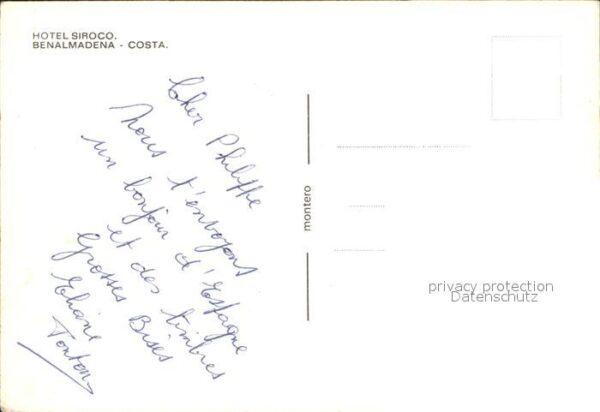 HOTEL SIROCO.
BENALMADENA - COSTA.
Cher Philippe
nous t'envoyons
un bonjour d'Espagne
et des timbres
Grosses Bises
Eliane
Tonton
montero
privacy protection
Datenschutz